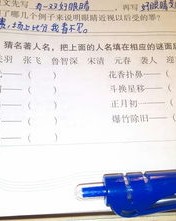 文先写 有一双好眼睛 再写 好眼睛
了哪几个例子来说明眼睛近视以后受的罪?
场上比分我看不见。
猜名著人名,把上面的人名填在相应的谜面后
关羽 张飞 鲁智深 宋清 元春 袭人 迎
( ) 花香扑鼻—(
( ) 斗换星移—(
( ) 正月初一—(
( ) 爆竹除旧—(